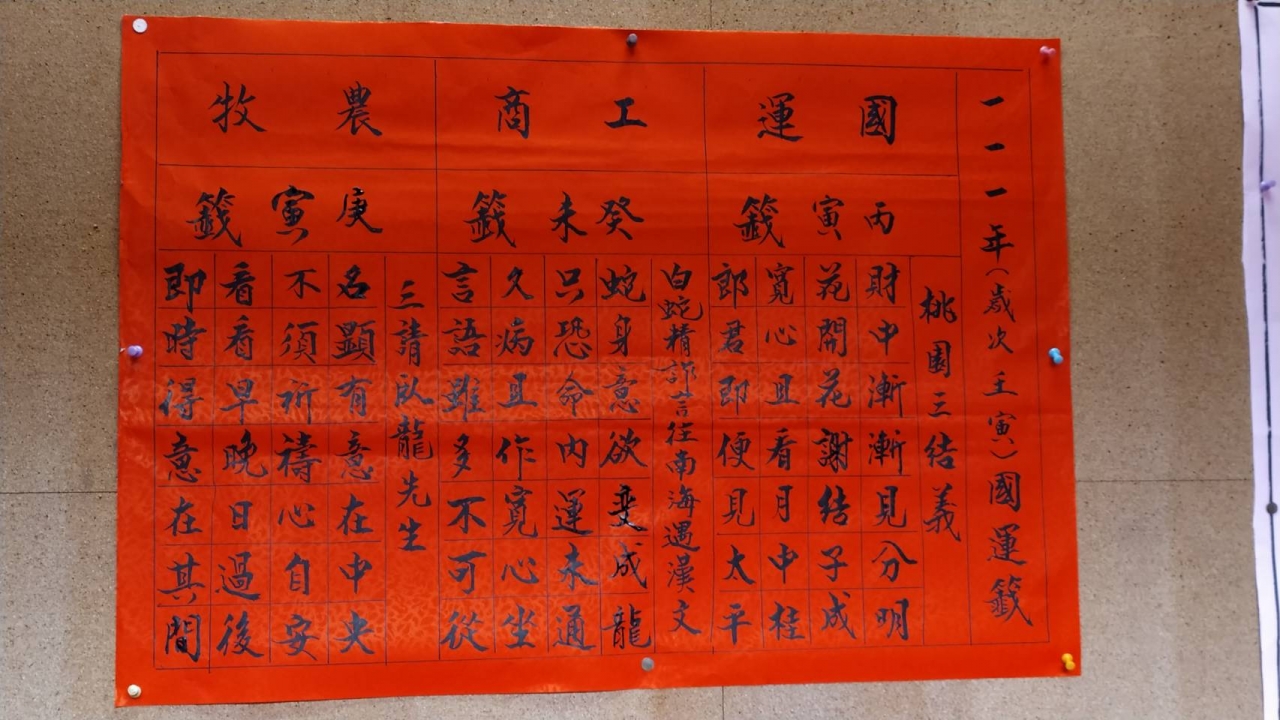 一一一年(歲次壬寅)國運籤
國運
丙寅籤
桃園三結義
財中漸漸見分明
花開花謝結子成
寬心且看月中桂
郎君即便見太平
工商
癸未籤
白蛇精詐言往南海遇漢文
蛇身意欲變成龍
只恐命內運未通
久病且作寬心坐
言語雖多不可從
農牧
庚寅籤
三請臥龍先生
名顯有意在中央
不須祈禱心自安
看看早晚日過後
即時得意在其間